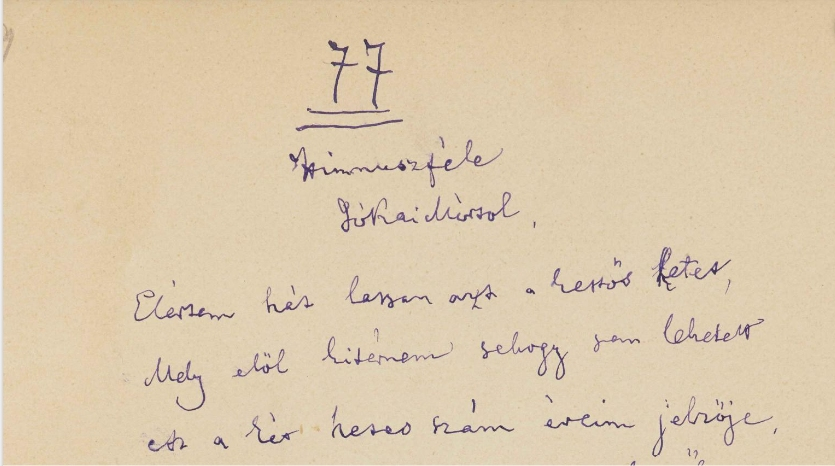 77
Himnuszféle
Jókai Mórtol,
Elértem hát lassan azt a kettős hetet,
Mely elöl kitérnem sehogy sem lehetett
ez a két hetes szám éveim jelzője,